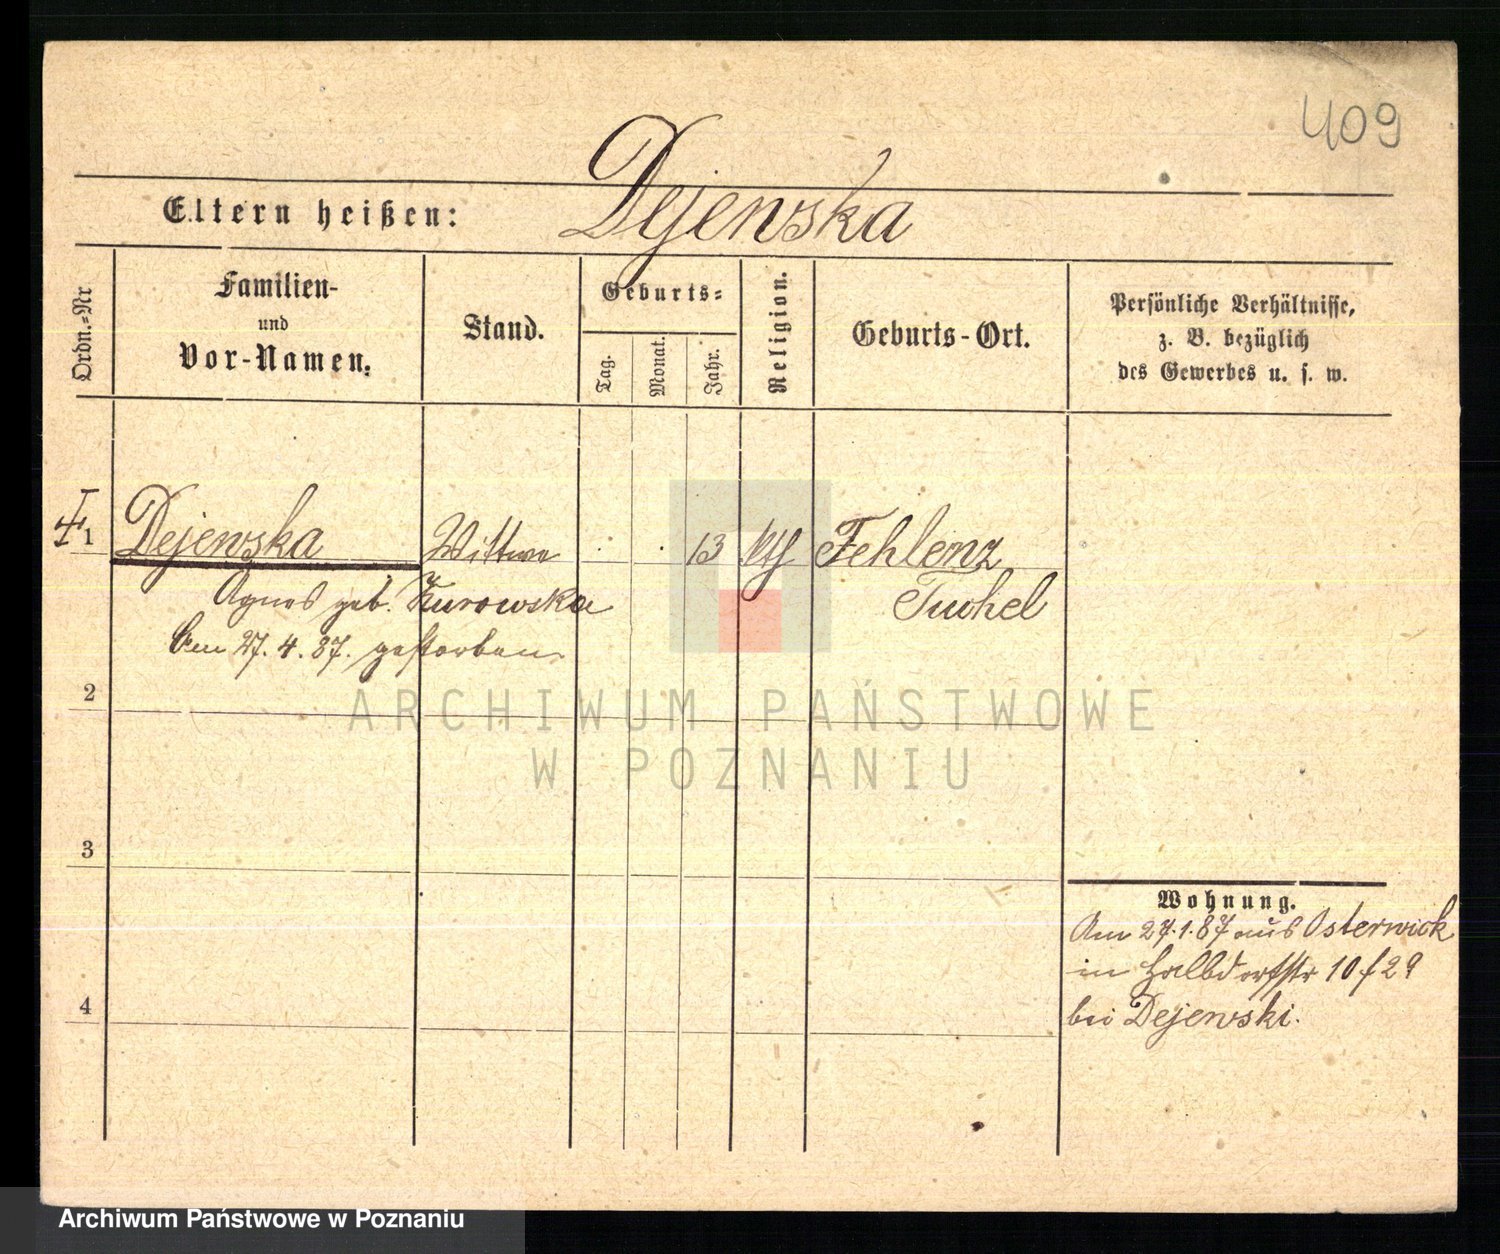 409
Dejewska
Eltern heißen:
Ordn.-Nr
Familien-
und
Vor-Namen.
Stand.
Geburts-
Tag.
Monat.
Jahr.
Religion.
Geburts-Ort.
Persönliche Verhältnisse,
z. B. bezüglich
des Gewerbes u. s. w.
1 Dejewska Wittwe 13 kth Fehlenz
Agnes geb. Zurowska Tuchel
Am 27.4.87. gestorben
2
3
4
Wohnung.
Am 27.1.87 aus Osterwick
in Halbdorfstr 10 f 29
bei Dejewski.
ARCHIWUM PAŃSTWOWE
W POZNANIU
Archiwum Państwowe w Poznaniu